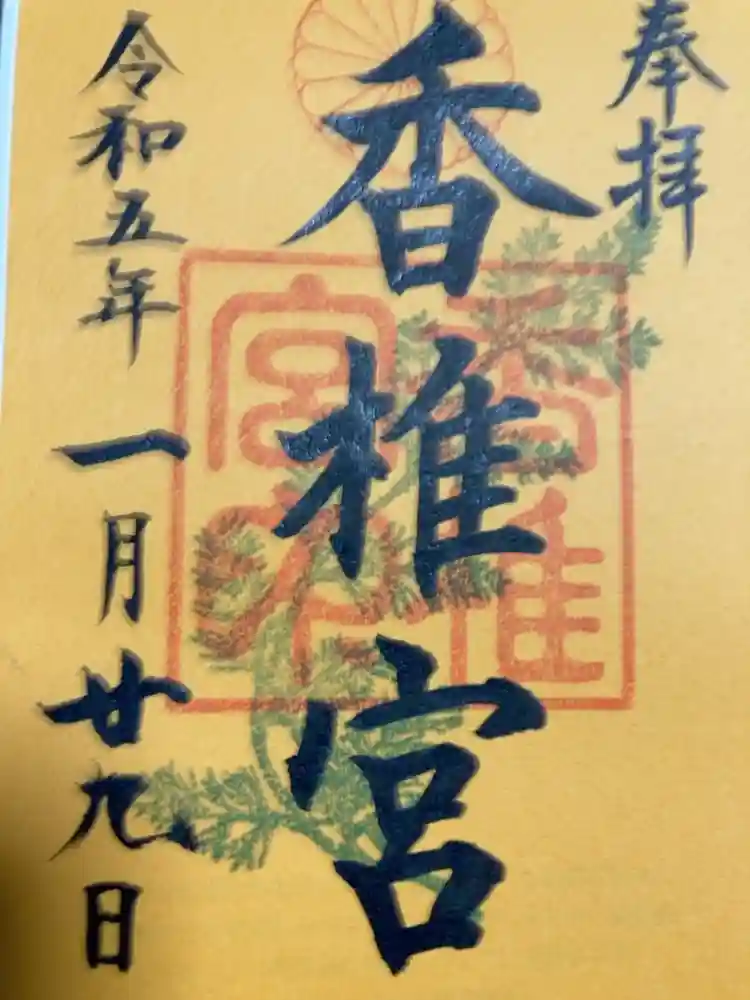 奉拝
香椎宮
令和五年一月廿九日